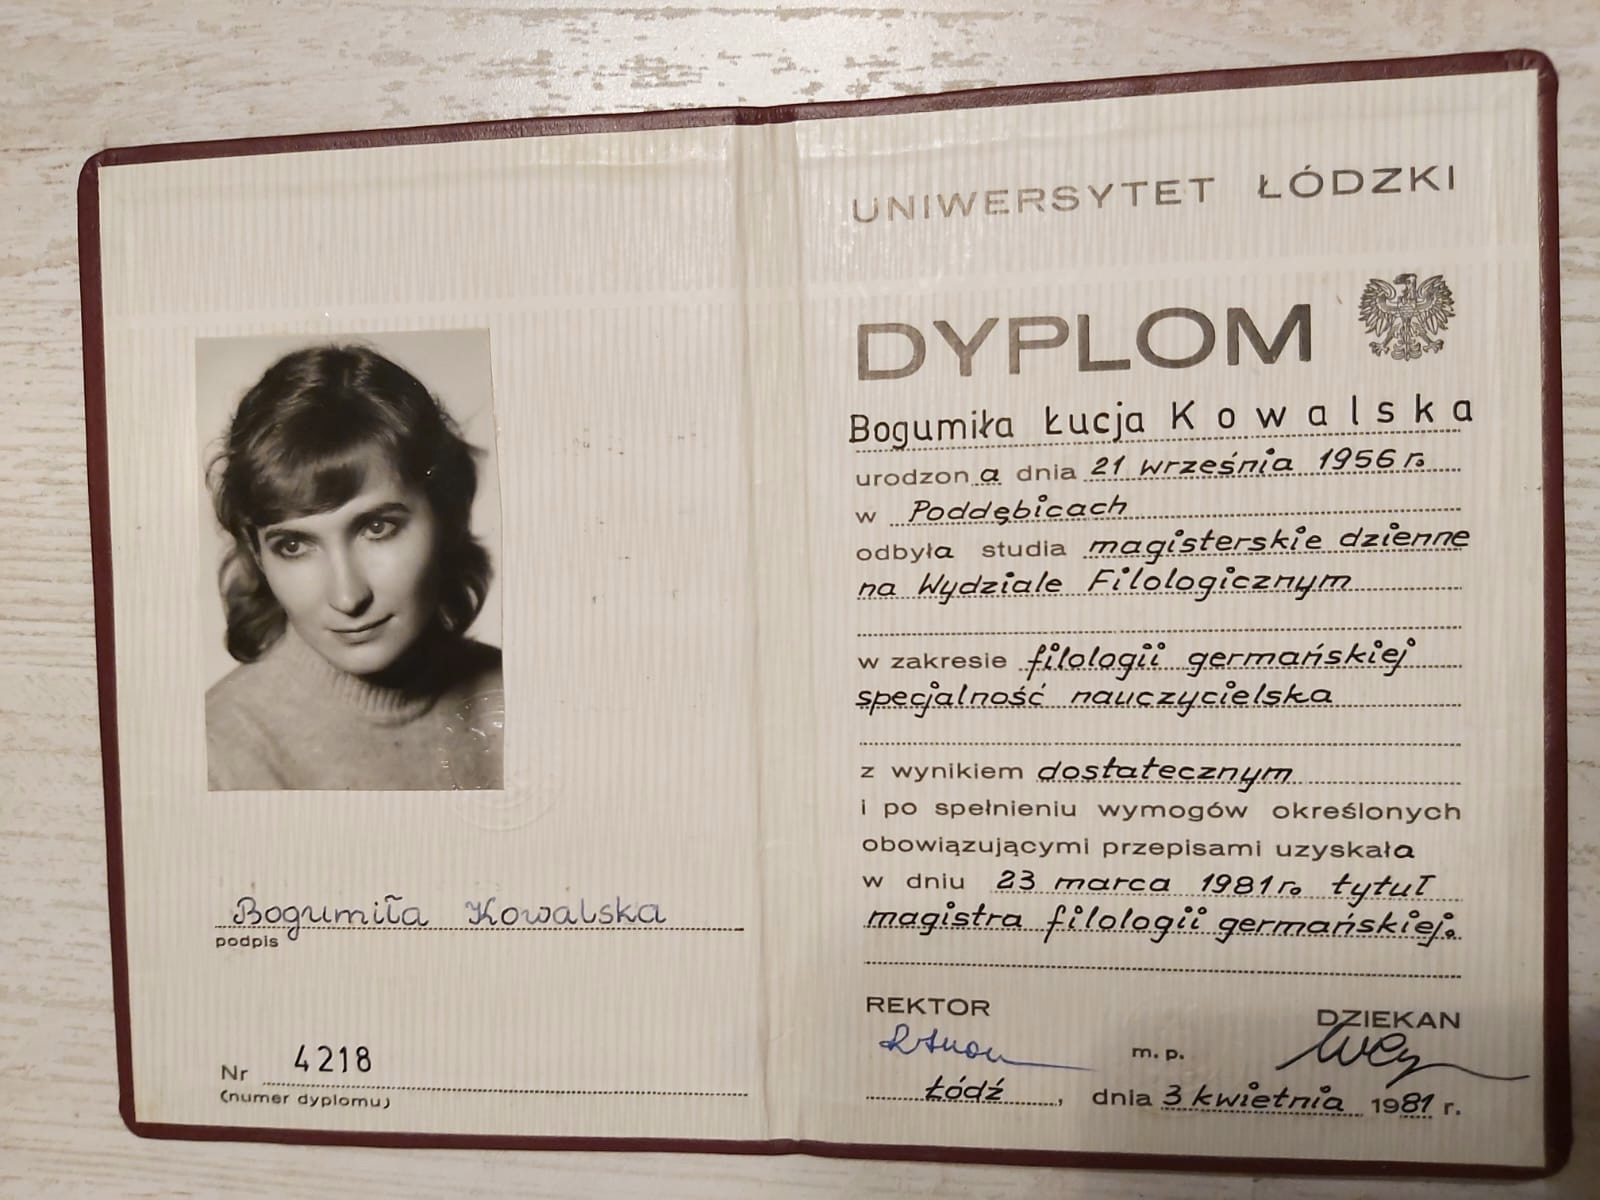 Bogumiła Kowalska
podpis
Nr 4218
(numer dyplomu)
UNIWERSYTET ŁÓDZKI
DYPLOM
Bogumiła Łucja Kowalska
urodzona dnia 21 września 1956 r.
w Poddębicach
odbyła studia magisterskie dzienne
na Wydziale Filologicznym
w zakresie filologii germańskiej
specjalność nauczycielska
z wynikiem dostatecznym
i po spełnieniu wymogów określonych
obowiązującymi przepisami uzyskała
w dniu 23 marca 1981 r. tytuł
magistra filologii germańskiej.
REKTOR
DZIEKAN
m. p.
Łódź, dnia 3 kwietnia 1981 r.